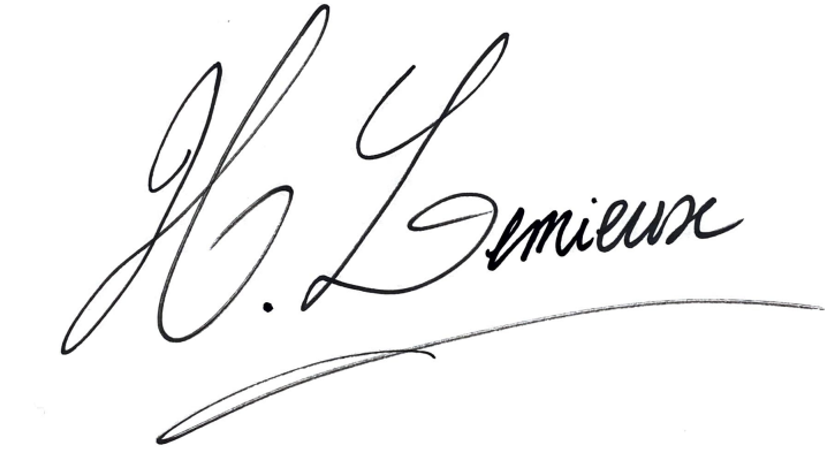 H. Lemieux